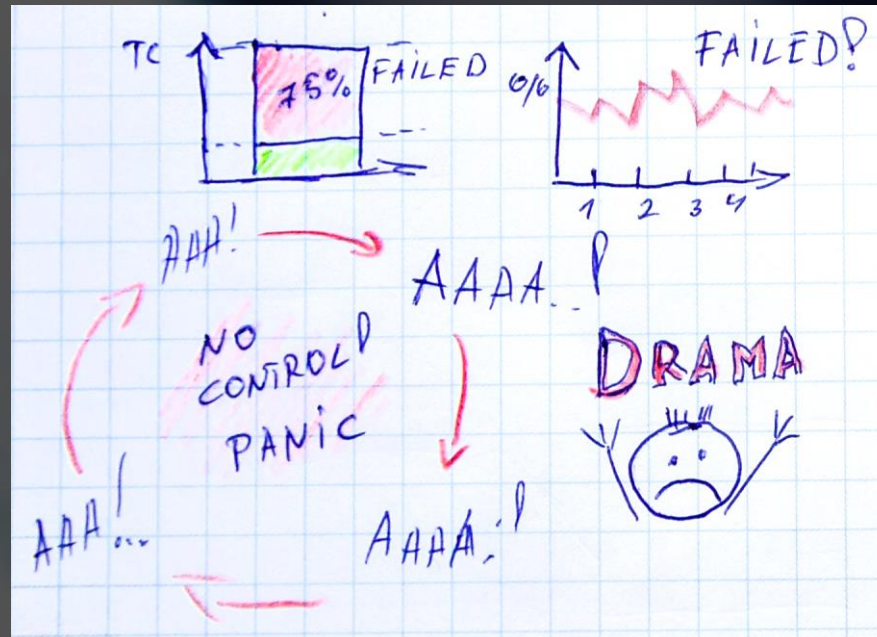 TC
75%
FAILED
%
FAILED!
1 2 3 4
AAA!
AAAA..!
NO
CONTROL!
PANIC
DRAMA
AAA!..
AAAA..!